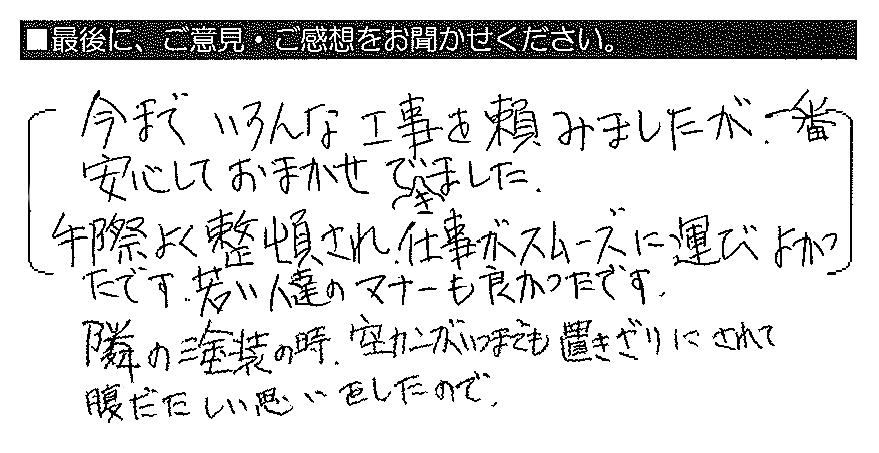 ■最後に、ご意見・ご感想をお聞かせください。
今までいろんな工事を頼みましたが、一番
安心しておまかせできました。
手際よく整頓され、仕事がスムーズに運びよかっ
たです。若い人達のマナーも良かったです。
隣の塗装の時、空カンがいつまでも置きざりにされて
腹だたしい思いをしたので、